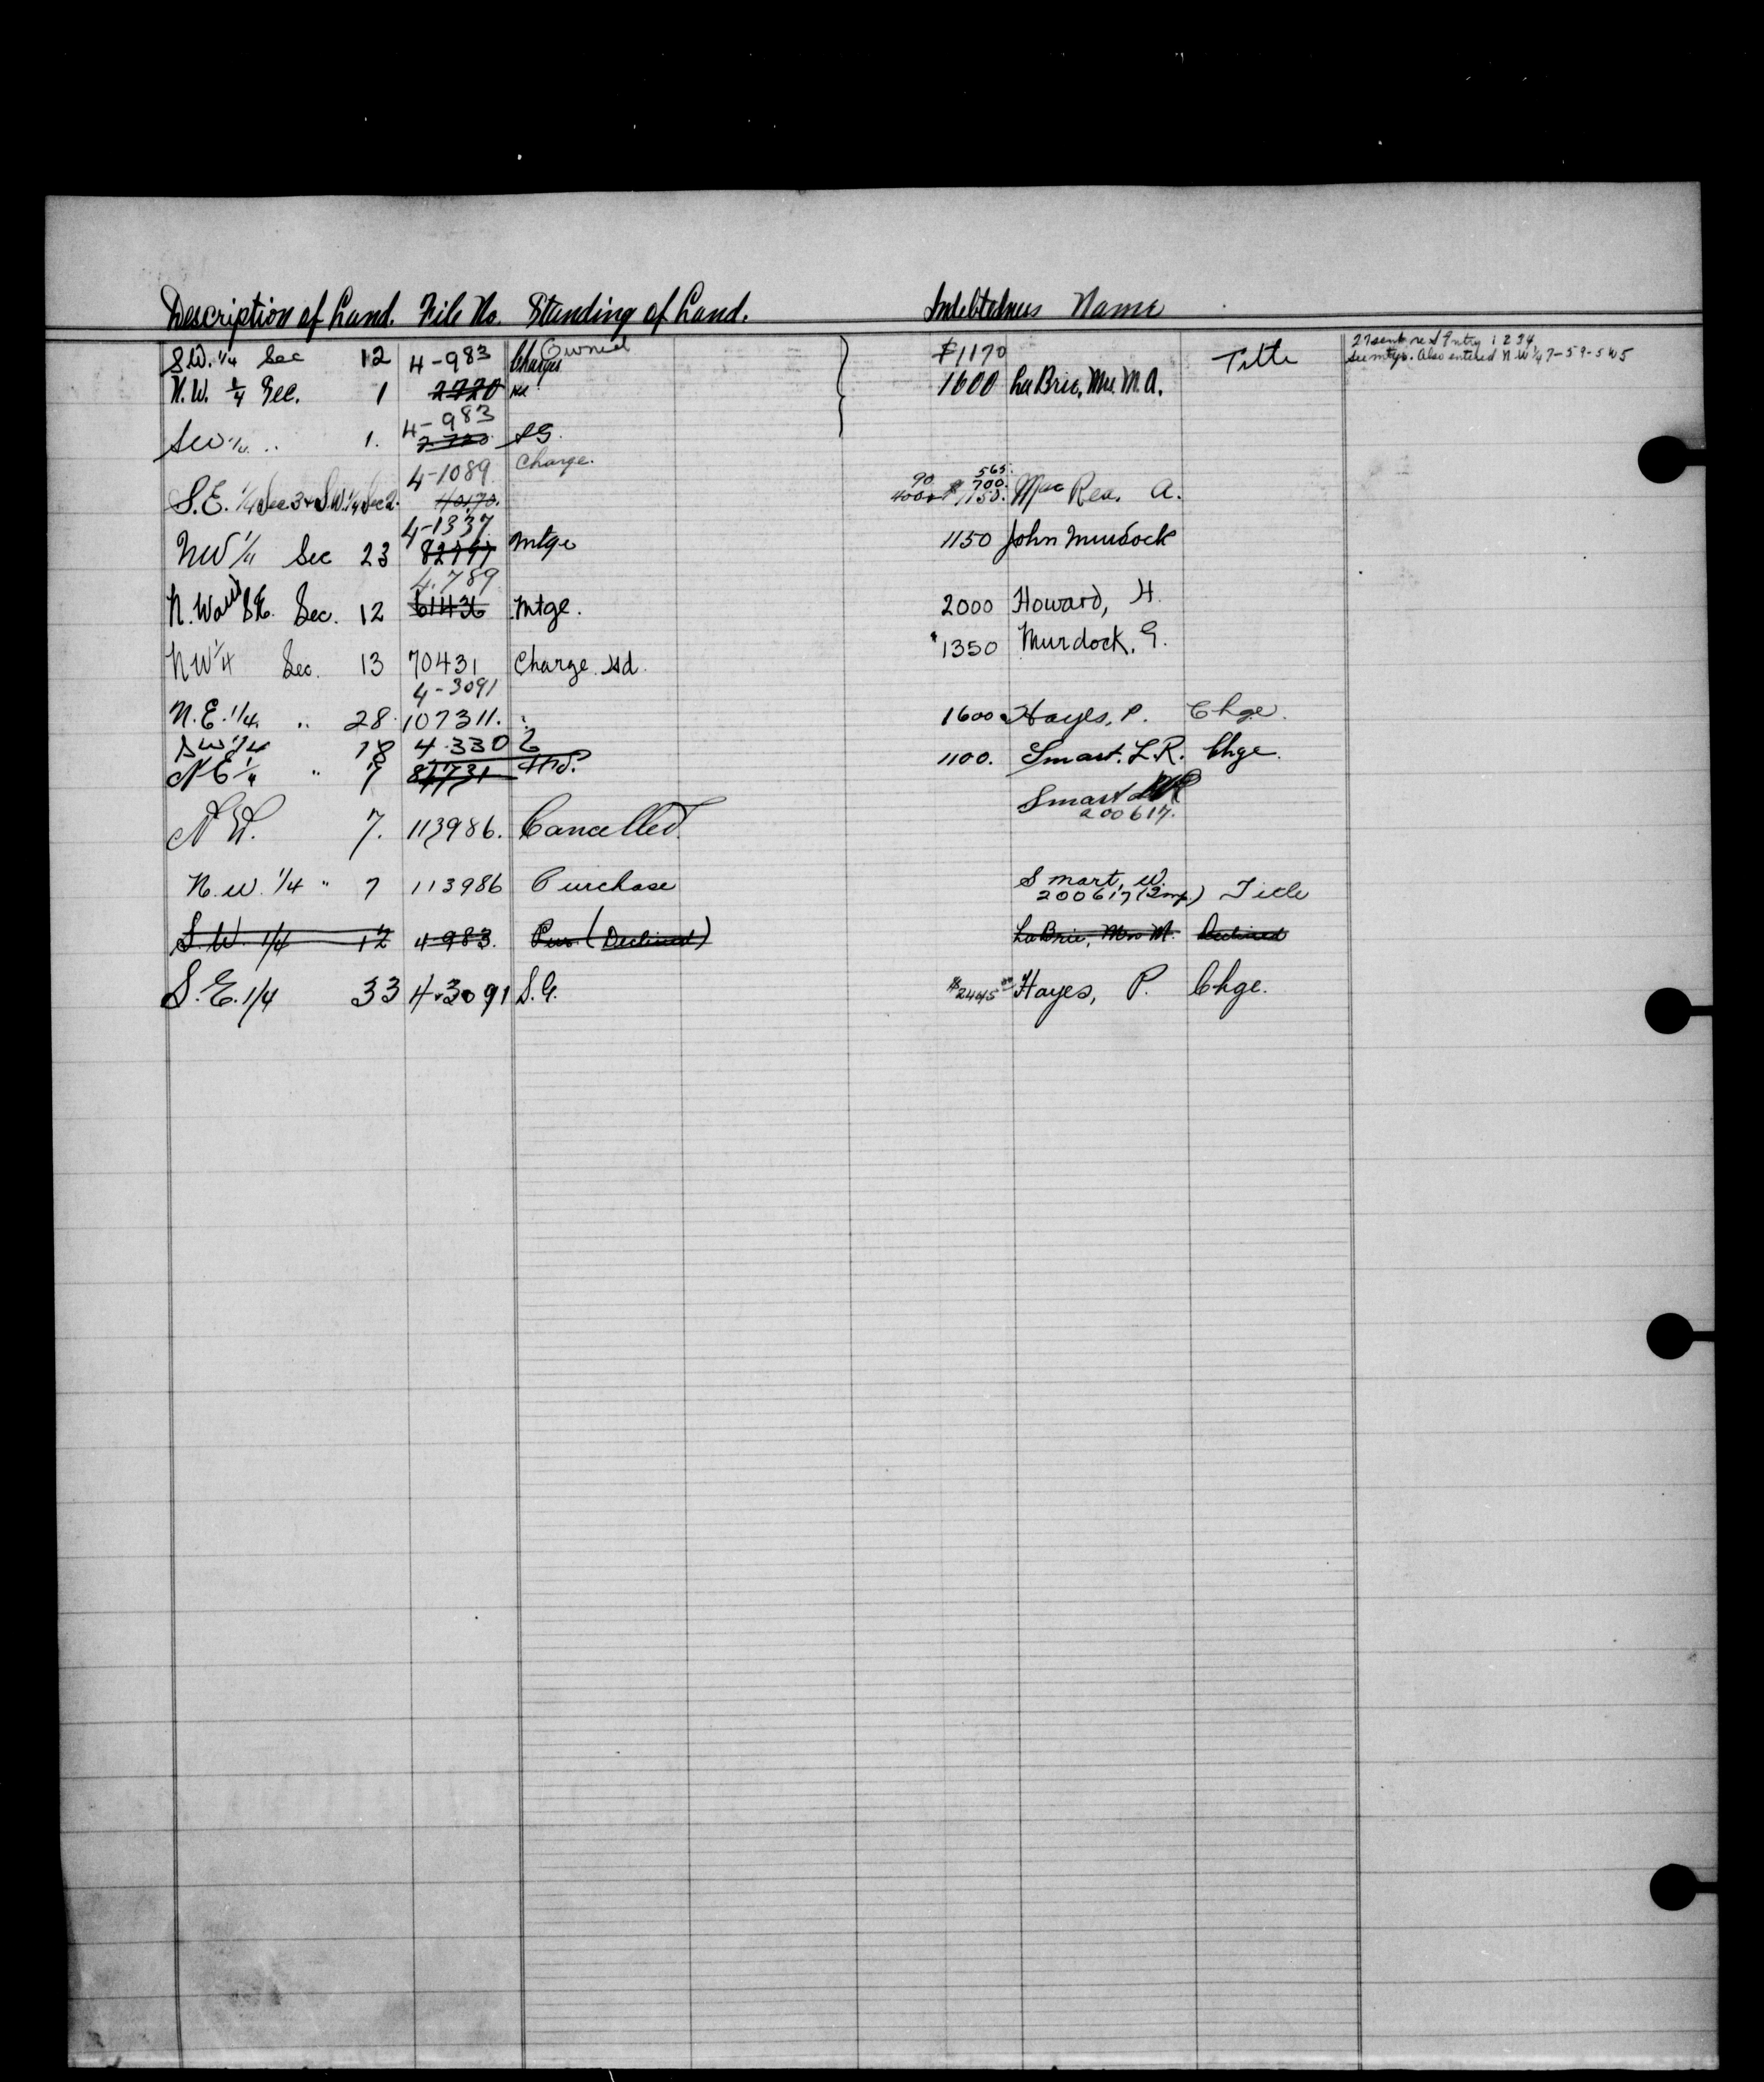 Description of Land. File No. Standing of Land. Indebtedness Name
Owned
S.W. 1/4 Sec 12 4-983 Charges $1170 Title
N.W. 1/4 Sec. 1 2720 1600 LaBrie, Mrs. M.A.
Also entered N.W 1/4 7-59-5 W5
4-983
SW 1/4 .. 1. SG.
Charge.
4-1089
90 565.
700.
S.E. 1/4 Sec 3 & S.W. 1/4 Sec 2. 40170. 4000 $1150. MacRea, A.
4-1337
NW 1/4 Sec 23 82797 Mtge 1150 John Murdock
4.789
N.W and S.E. Sec. 12 61436 Mtge. 2000 Howard, H.
NW 1/4 Sec. 13 70431 Charge Hd. $1350 Murdock, G.
4-3091
N.E. 1/4. .. 28. 107311. 1600 Hayes, P. Chge.
SW 1/4 18 4.3302
NE 1/4 " 7 81731 Hd. 1100. Smart. L.R. Chge.
Smart
200617.
N.W. 7. 113986. Cancelled.
N.W. 1/4 " 7 113986 Purchase Smart, W.
200617 (Imp.) Title
S.W. 1/4 12 4-983. Pur (Declined) LaBrie, Mrs M. Declined
S.E. 1/4 33 4-3091 S.G. $2445 00 Hayes, P. Chge.